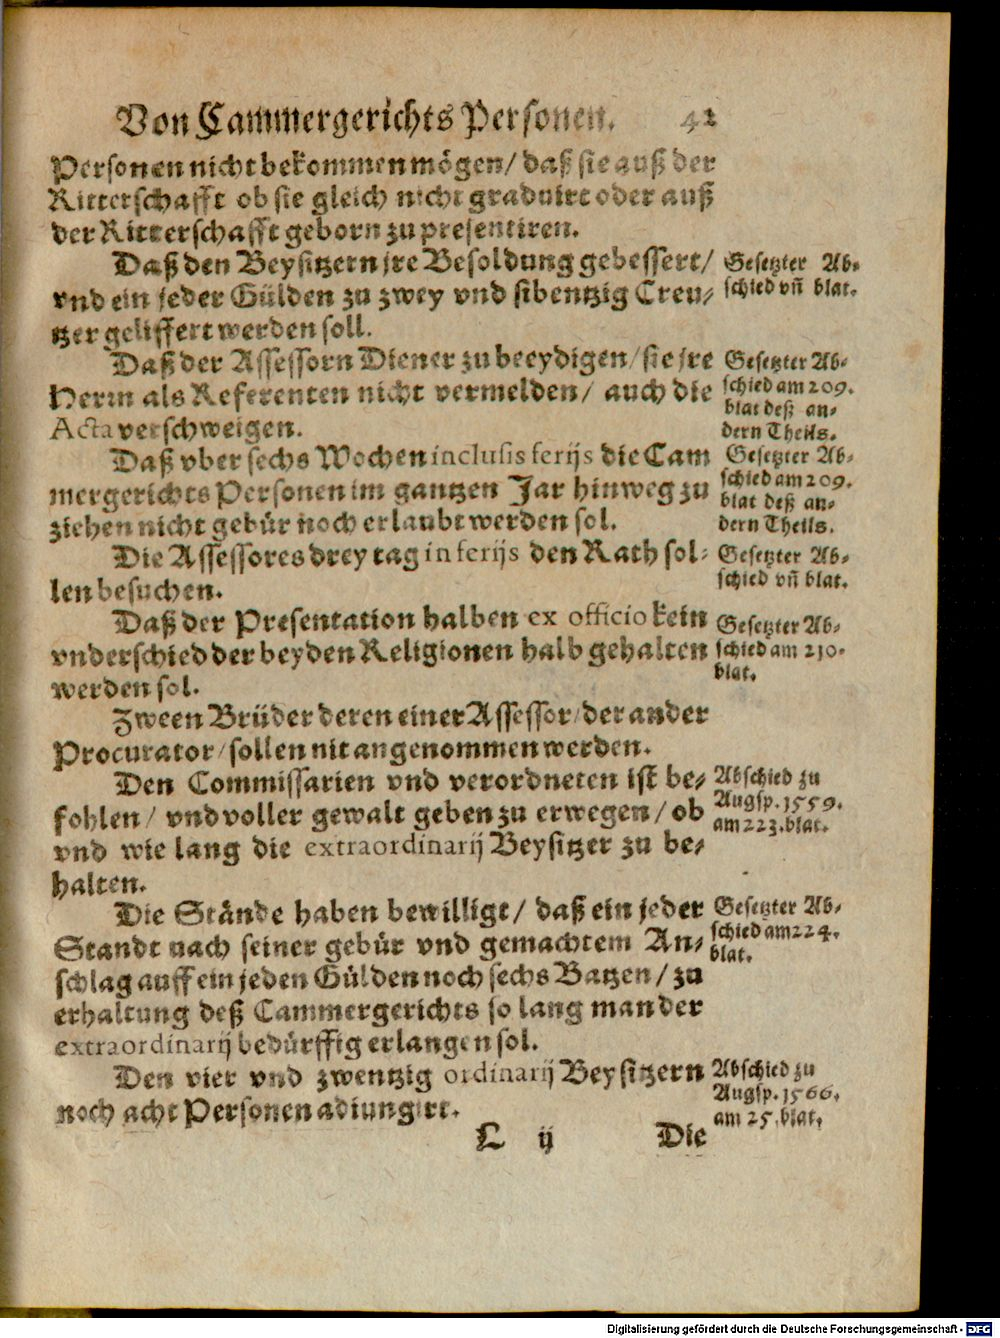 Von Cammergerichts Personen. 42
Personen nicht bekommen mögen/ daß sie auß der
Ritterschafft ob sie gleich nicht graduirt oder auß
der Ritterschafft geborn zu presentiren.
Daß den Beysitzern jre Besoldung gebessert/
vnd ein jeder Gülden zu zwey vnd sibentzig Creu-
tzer geliffert werden soll.
Gesetzter Ab-
schied vñ blat.
Daß der Assessorn Diener zu beeydigen/ sie jre
Herrn als Referenten nicht vermelden/ auch die
Acta verschweigen.
Gesetzter Ab-
schied am 209.
blat deß an-
dern Theils.
Daß vber sechs Wochen inclusis ferijs die Cam
mergerichts Personen im gantzen Jar hinweg zu
ziehen nicht gebür noch erlaubt werden sol.
Gesetzter Ab-
schied am 209.
blat deß an-
dern Theils.
Die Assessores drey tag in ferijs den Rath sol-
len besuchen.
Gesetzter Ab-
schied vñ blat.
Daß der Presentation halben ex officio kein
vnderschied der beyden Religionen halb gehalten
werden sol.
Gesetzter Ab-
schied am 210.
blat.
Zween Brüder deren einer Assessor/ der ander
Procurator/ sollen nit angenommen werden.
Den Commissarien vnd verordneten ist be-
fohlen/ vnd voller gewalt geben zu erwegen/ ob
vnd wie lang die extraordinarij Beysitzer zu be-
halten.
Abschied zu
Augsp. 1559.
am 223. blat.
Die Stände haben bewilligt/ daß ein jeder
Standt nach seiner gebür vnd gemachtem An-
schlag auff ein jeden Gülden noch sechs Batzen/ zu
erhaltung deß Cammergerichts so lang man der
extraordinarij bedürffig erlangen sol.
Gesetzter Ab-
schied am 224.
blat.
Den vier vnd zwentzig ordinarij Beysitzern
noch acht Personen adiungirt.
Abschied zu
Augsp. 1566.
am 25. blat.
L ij Die
Digitalisierung gefördert durch die Deutsche Forschungsgemeinschaft - DFG